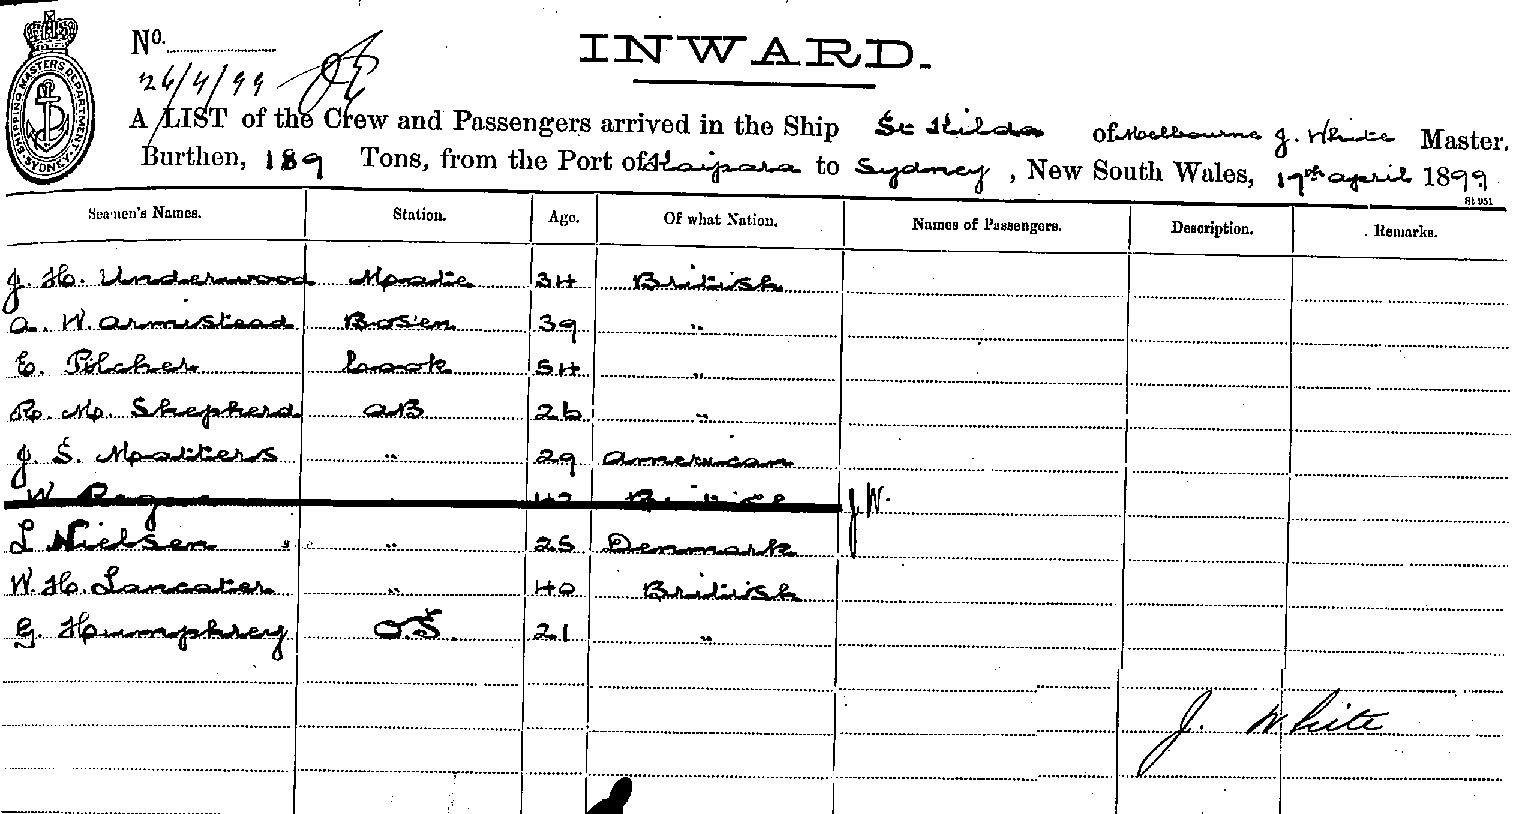 SHIPPING MASTERS DEPARTMENT SYDNEY
No.
26/4/99
INWARD.
A LIST of the Crew and Passengers arrived in the Ship St Kilda of Melbourne J. White Master.
Burthen, 189 Tons, from the Port of Kaipara to Sydney, New South Wales, 19th April 1899
St 951
Seamen's Names. Station. Age. Of what Nation. Names of Passengers. Description. Remarks.
J. H. Underwood Mate 34 British
A. W. Armistead Bosen 39 "
E. Pilcher Cook 54 "
R. M. Shepherd AB 26 "
J. S. Matters " 29 American
W. 42 British J.W.
L Nielsen " 25 Denmark
W. H. Lancaster " 40 British
G. Humphrey O.S. 21 "
J. White